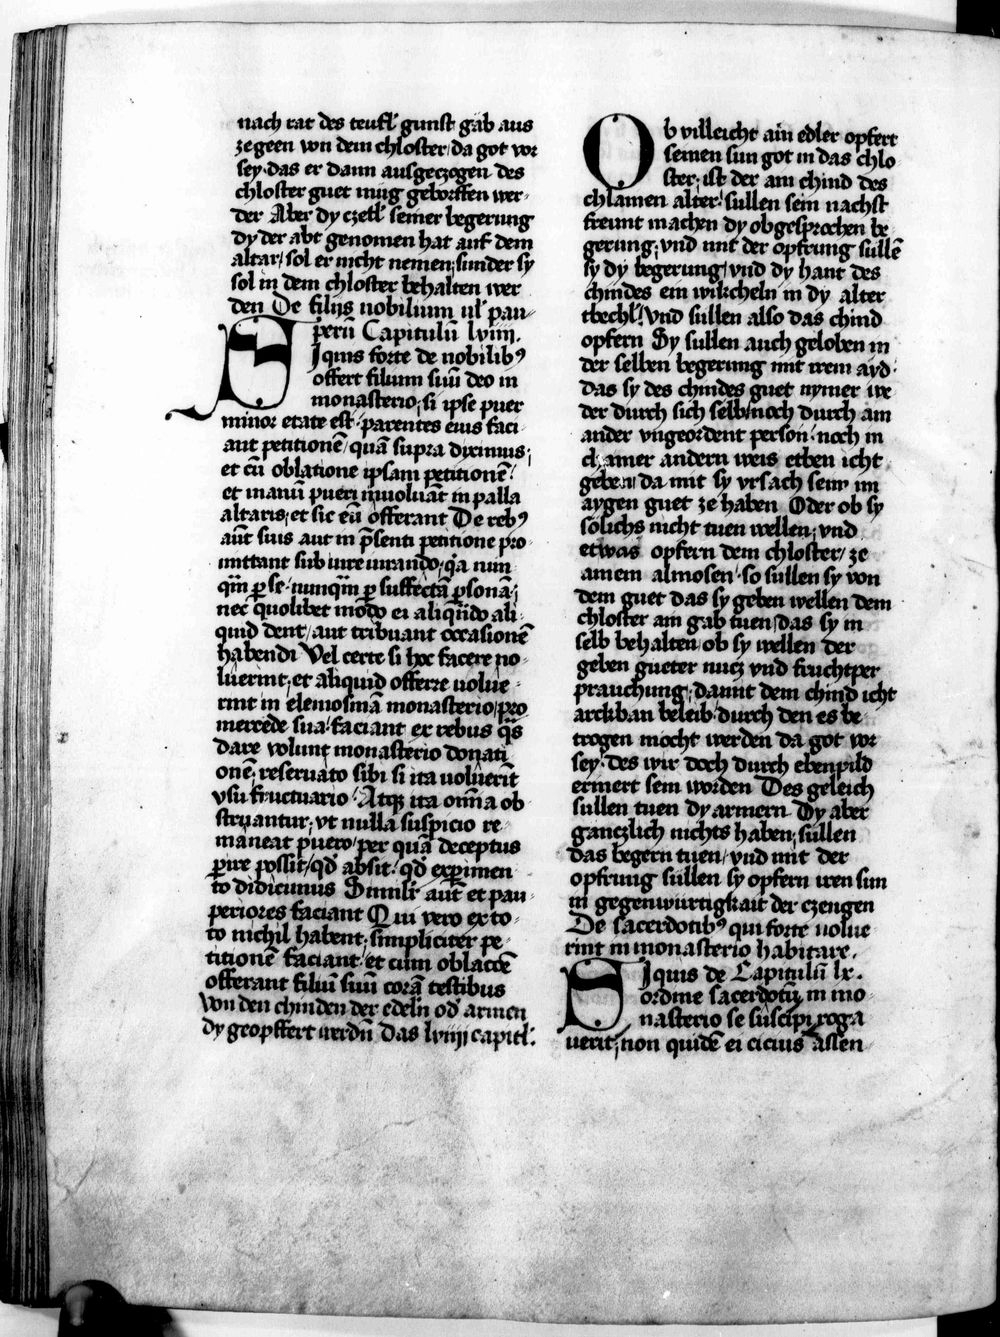 nach rat des teufl̄ gunst gab aus
zegeen von dem chloster / da got vor
sey · das er dann ausgeczogen des
chloster guet mug geborffen wer-
der Aber dy czetl̄ seiner begerung
dy der abt genomen hat auf dem
altar / sol er nicht nemen ; sunder sy
sol in dem chloster behalten wer
den De filijs nobilium ul̄ pau-
perū Capitulū lviiij.
SIquis forte de nobilibꝰ
offert filium suū deo in
monasterio ; si ipse puer
minor etate est · parentes eius faci
ant petitionē / quā supra diximus ;
et cū oblatione ipsam petitionē /
et manū pueri inuoluāt in palla
altaris ; et sic eū offerant De rebꝰ
aūt suis aut in p̄senti petitione pro
mittant sub iure iurando ; q̄a nun
qūm ꝑ se · nunqūm ꝑ suffectā ꝑsonā ;
nec quolibet modo ei aliqn̄do ali-
quid dent / aut tribuant occasionē
habendi Vel certe si hoc facere no-
luerint ; et aliquid offerre uolue-
rint in elemosinā monasterio / pro
mercede sua · faciant ex rebus q̄s
dare volunt monasterio donati
onē ; reseruato sibi si ita uoluerīt
vsu fructuario · Atqꝫ ita omīa ob
struantur ; vt nulla suspicio re-
maneat puero / per quā deceptus
ꝑire possit / qd̄ absit · qd̄ exꝑimen
to didicimus Similr̄ aūt et pau-
periores faciant Qui vero ex to-
to nichil habent ; simpliciter pe-
titionē faciant / et cum oblacōe
offerant filiū suū corā testibus
Von den chinden der edeln od̄ armen
dy geopffert werdn̄ Das lviiij capitl̄.
Ob villeicht ain edler opfert
seinen sun got in das chlo-
ster ; ist der am chind des
chlamen alter · sullen sein nachst
freunt machen dy obgesprochen be
gerung ; vnd mit der opfrung sullē
sy dy begerung / vnd dy hant des
chindes ein wikcheln in dy alter
tuechl̄ / Vnd sullen also das chind
opfern Sy sullen auch geloben in
der selben begerung mit irem ayd ·
das sy des chindes guet nymer we
der durch sich selb / noch durch ain
ander vngeordent person · noch in
chainer andern weis etben icht
geben ; da mit sy vrsach seim im
aygen guet ze haben Oder ob sy
solichs nicht tuen wellen ; vnd
etwas opfern dem chloster / ze
ainem almosen · so sullen sy von
dem guet das sy geben wellen dem
chloster ain gab tuen / das sy in
selb behalten / ob sy wellen der
geben gueter nucz vnd fruchtper
prauchung ; damit dem chind icht
arckban beleib · durch den es be-
trogen mocht werden da got vor
sey · des wir doch durch ebenpild
ermert sein worden Des geleich
sullen tuen dy armern Dy aber
gänczlich nichts haben ; sullen
das begern tuen / vnd mit der
opfrung sullen sy opfern iren sun
in gegenwürtigkait der czeugen
De sacerdotibꝰ qui forte uolue
rint in monasterio habitare .
SIquis de Capitulū lx .
ordine sacerdotū in mo-
nasterio se suscipi roga
uerit ; non quidē ei cicius assen-